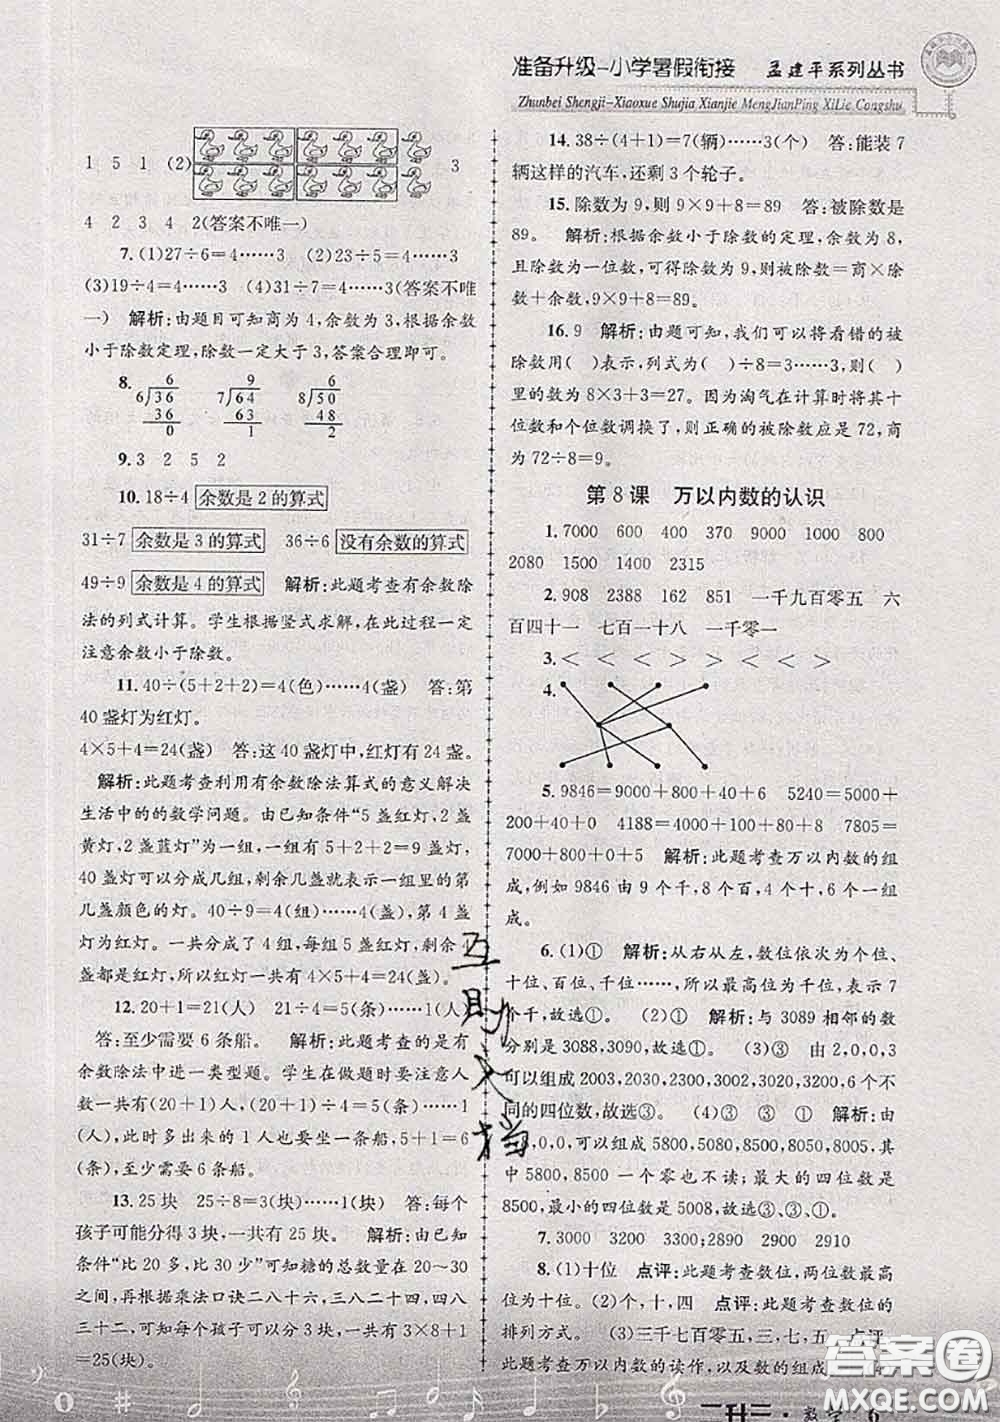 准备升级-小学暑假衔接 孟建平系列丛书
Zhunbei Shengji-Xiaoxue Shujia Xianjie MengJianPing XiLie Congshu
1 5 1 (2) 3
4 2 3 4 2(答案不唯一)
7.(1)27÷6=4……3 (2)23÷5=4……3
(3)19÷4=4……3 (4)31÷7=4……3(答案不唯
一) 解析:由题目可知商为 4,余数为 3,根据余数
小于除数定理,除数一定大于 3,答案合理即可。
8. 6 9 6
6√36 7√64 8√50
36 63 48
0 1 2
9.3 2 5 2
10.18÷4 余数是 2 的算式
31÷7 余数是 3 的算式 36÷6 没有余数的算式
49÷9 余数是 4 的算式 解析:此题考查有余数除
法的列式计算。学生根据竖式求解,在此过程一定
注意余数小于除数。
11.40÷(5+2+2)=4(色)……4(盏) 答:第
40 盏灯为红灯。
4×5+4=24(盏) 答:这 40 盏灯中,红灯有 24 盏。
解析:此题考查利用有余数除法算式的意义解决
生活中的的数学问题。由已知条件“5 盏红灯,2 盏
黄灯,2 盏蓝灯”为一组,一组有 5+2+2=9(盏)
灯,可以分成几组,剩余几盏就表示一组里的第
几盏颜色的灯。40÷9=4(组)……4(盏),第 4 盏
灯为红灯。一共分成了 4 组,每组 5 盏红灯,剩余 4
盏都是红灯,所以红灯一共有 4×5+4=24(盏)。
12.20+1=21(人) 21÷4=5(条)……1(人)
答:至少需要 6 条船。 解析:此题考查的是有
余数除法中进一类型题。学生在做题时要注意人
数一共有(20+1)人,(20+1)÷4=5(条)……1
(人),此时多出来的 1 人也需要一条船,5+1=6
(条),至少需要 6 条船。
13.25 块 25÷8=3(块)……1(块) 答:每个
孩子可能分得 3 块,一共有 25 块。 解析:由已知
条件“比 20 多,比 30 少”可知糖的总数量在 20～30
之间,再根据乘法口诀二八十六,三八二十四,四八
三十二,可知每个孩子可以分 3 块,一共有 3×8+1
=25(块)。
14.38÷(4+1)=7(辆)……3(个) 答:能装 7
辆这样的汽车,还剩 3 个轮子。
15.除数为 9,则 9×9+8=89 答:被除数是
89。 解析:根据余数小于除数的定理,余数为 8,
且除数为一位数,可得除数为 9,则被除数=商×除
数+余数,所以 9×9+8=89。
16.9 解析:由题可知,我们可以将看错的被
除数用( )表示,列式为( )÷8=3……3,则( )
里的数为 8×3+3=27。因为淘气在计算时将其十
位数和个位数调换了,所以正确的被除数应是 72,商
为 72÷8=9。
第 8 课 万以内数的认识
1.7000 600 400 370 9000 1000 800
2080 1500 1400 2315
2.908 2388 162 851 一千九百零五 六
百四十一 七百一十八 一千零一
3.< < < > > > < <
4.
5.9846=9000+800+40+6 5240=5000+
200+40+0 4188=4000+100+80+8 7805=
7000+800+0+5 解析:此题考查万以内数的组
成,例如 9846 由 9 个千,8 个百,4 个十,6 个一
组成。
6.(1)① 解析:从右从左,数位依次为个位、
十位、百位、千位……,所以最高位为千位,表示 7
个千,故选①。 (2)① 解析:与 3089 相邻的数
分别是 3088,3090,故选①。 (3)③ 由 2,0,0,3
可以组成 2003,2030,2300,3002,3020,3200,6 个不
同的四位数,故选③。 (4)③ ③ ① 解析:由
5,8,0,0,可以组成 5800,5080,8500,8050,8005。其
中 5800,8500 一个零也不读;最大的四位数是
8500,最小的四位数是 5008,故选③、③、①。
7.3000 3100 3300 2890 2900 2910
8.(1)十位 点评:此题考查数位,两位数最高
位为十位。(2)个,十,四 点评:此题考查数位的
排列方式。 (3)三千七百零五,三,五 点评:
此题考查万以内数的读作,以及数的组成
互助文档
答案圈
MXQE.COM
二升三·数学 6